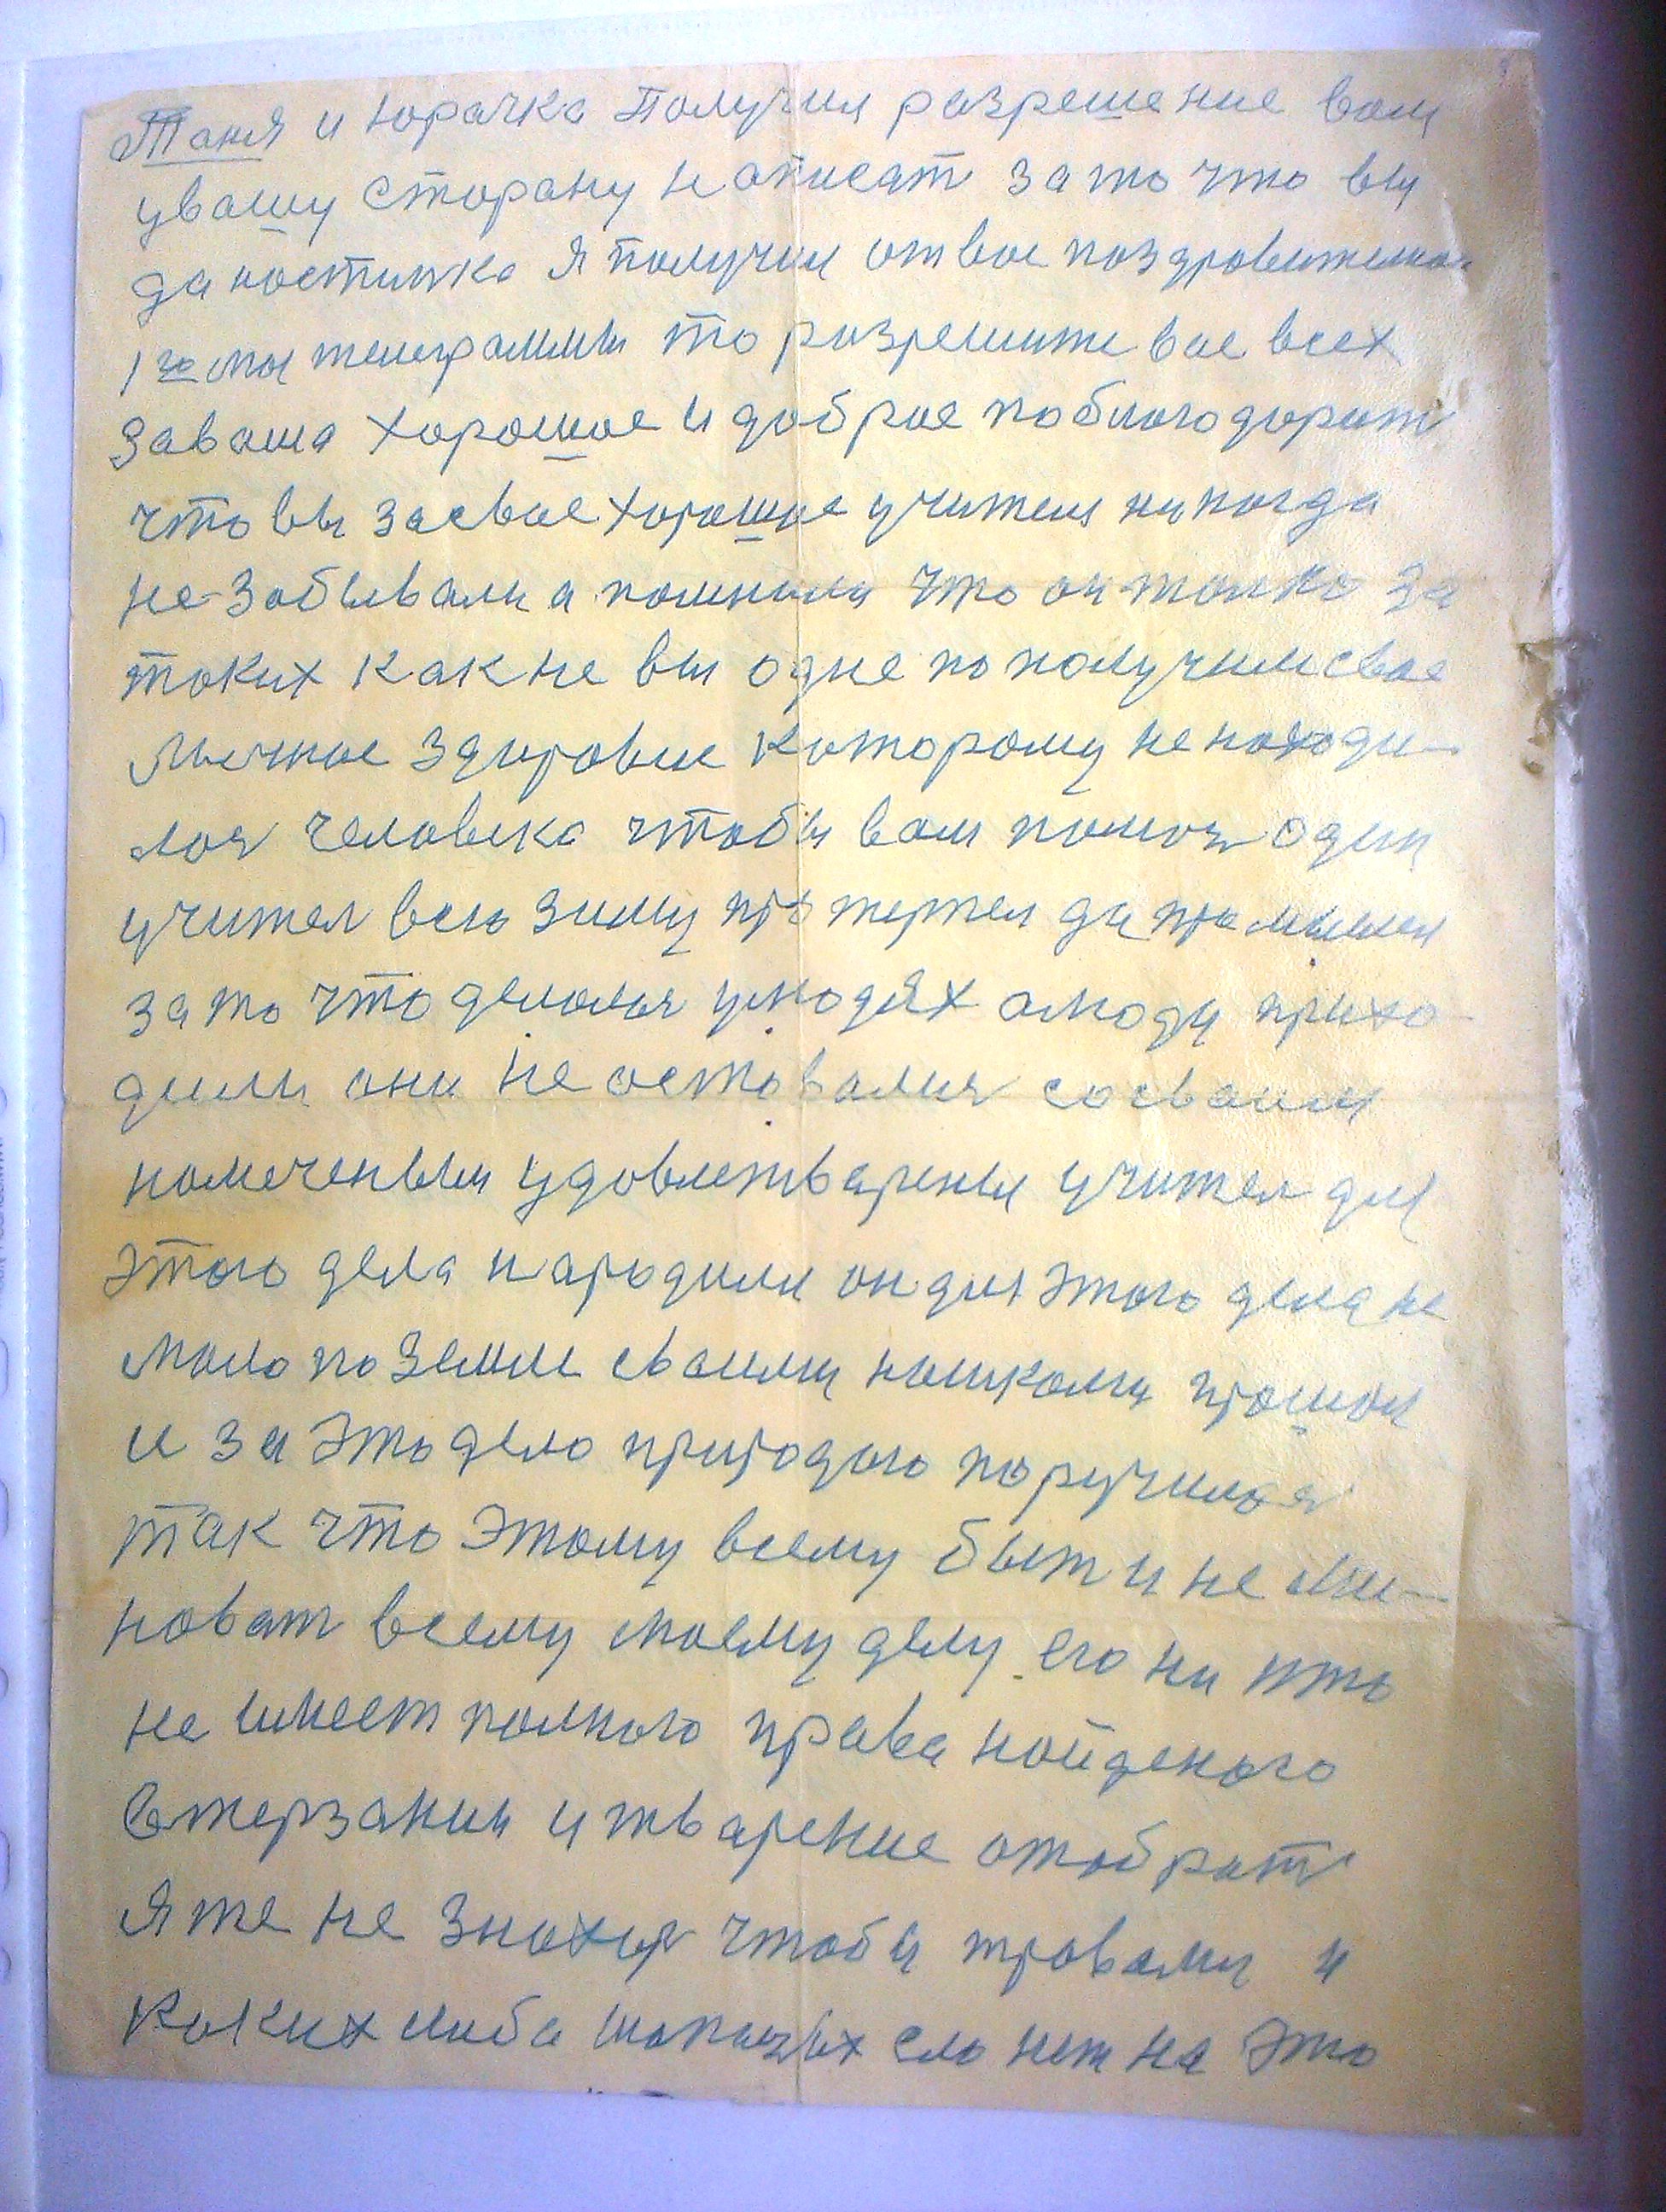 Таня и Юрачка Получил разрешение вам
увашу сторану написат за то что вы
да костилка Я получил от вас поздравительная
1го мая телеграммы то разрешите вас всех
Заваша хорошое и доброе поблогодарит
что вы засвое хорошие учителя никогда
не забывали а помнили что он толко за
таких как не вы одне пополучилисвое
личное здоровие каторому не находи-
лося человека чтобы вам помочь один
учител всю зиму протерпел да промыслил
за то что делалося улюдях алюди прихо-
дили они не оставалися сосваим
намеченым удовлетварены учител для
этого дела народили он для этого дела не
мало по земли сваими ножками прошол
и за это дело природаю поручился
так что этому всему быт и не ми-
новат всему моему делу его ни кто
не имеет полного права найденого
втерзании и тварение отобрат
Я же не знахар чтобы травами и
каких либа шопачих сло нет на это